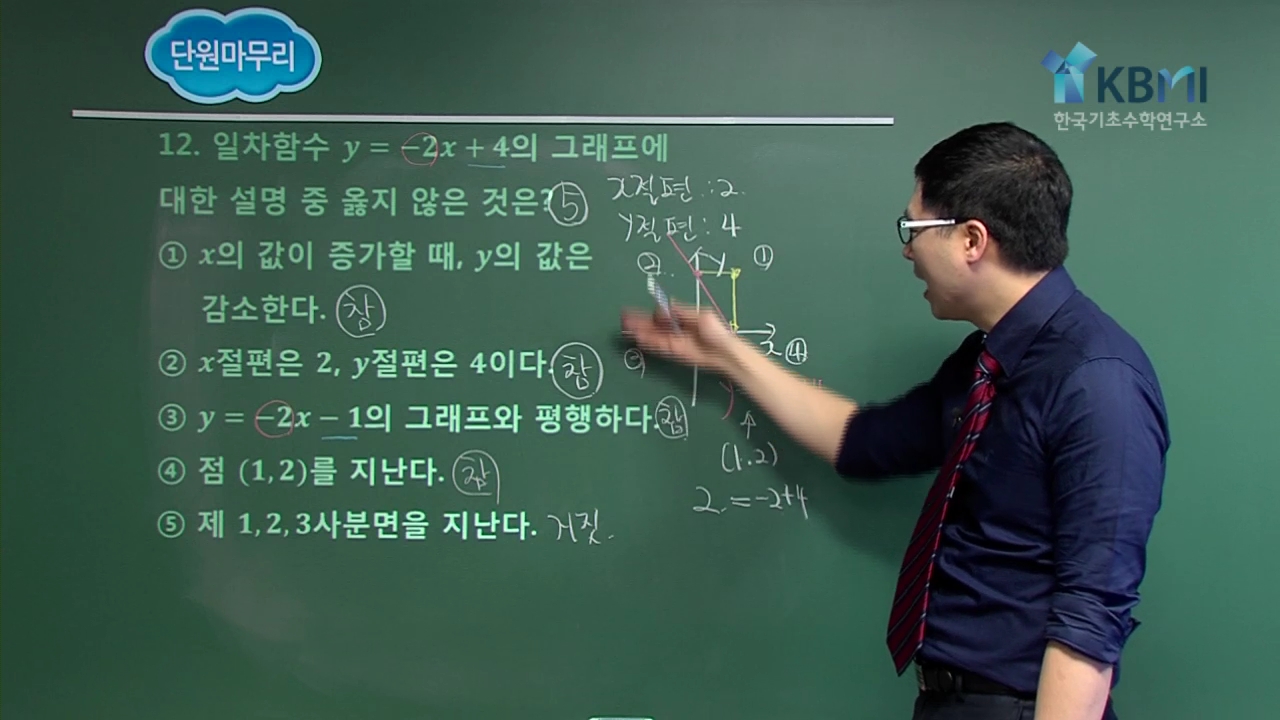 단원마무리
KBMI
한국기초수학연구소
12. 일차함수 y = -2x + 4의 그래프에
대한 설명 중 옳지 않은 것은? ⑤
① x의 값이 증가할 때, y의 값은
감소한다. 참
② x절편은 2, y절편은 4이다. 참
③ y = -2x - 1의 그래프와 평행하다. 참
④ 점 (1, 2)를 지난다. 참
⑤ 제 1, 2, 3사분면을 지난다. 거짓.
x절편 : 2
y절편 : 4
② y ①
x ④
(1.2)
2 = -2+4